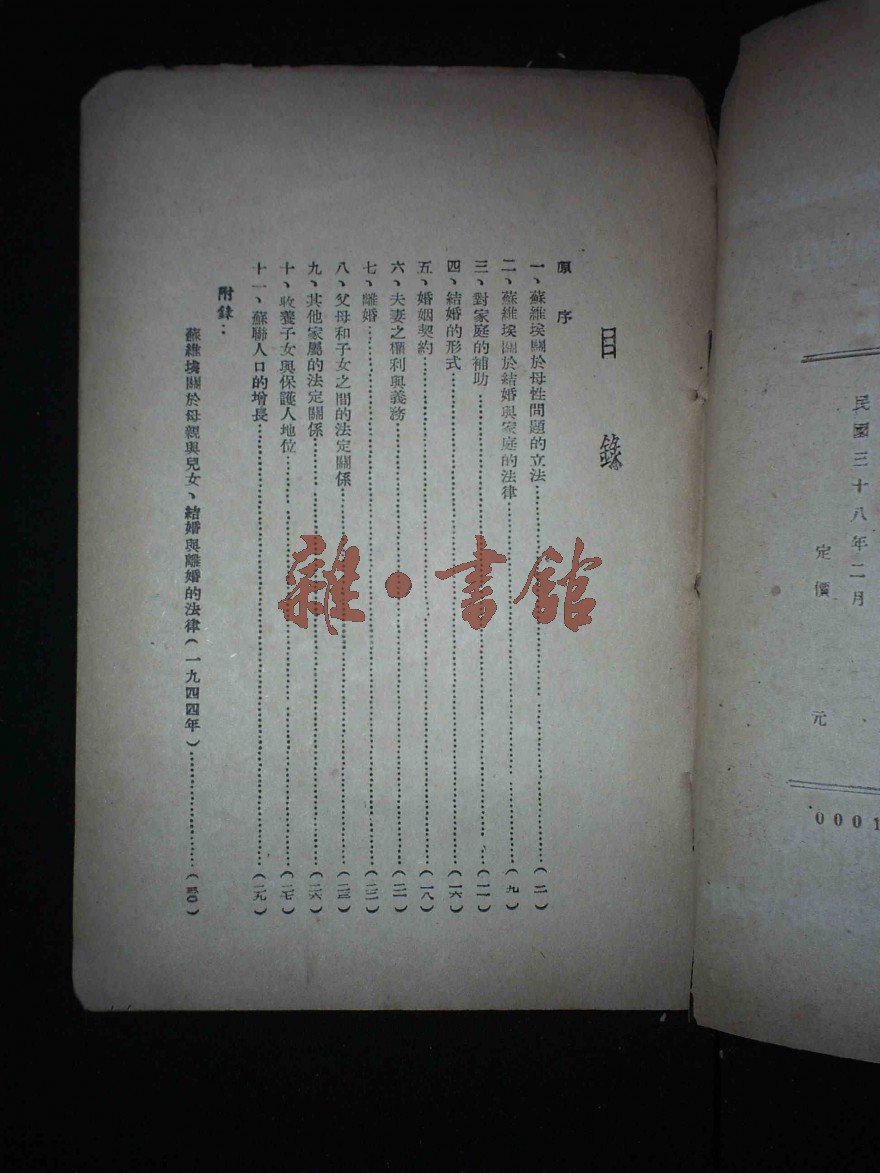 民國三十八年二月
定價 元
0001
目錄
原序
一、蘇維埃關於母性問題的立法……(二)
二、蘇維埃關於結婚與家庭的法律……(九)
三、對家庭的補助……(一一)
四、結婚的形式……(一六)
五、婚姻契約……(一八)
六、夫妻之權利與義務……(二一)
七、離婚……(二二)
八、父母和子女之間的法定關係……(二三)
九、其他家屬的法定關係……(二六)
十、收養子女與保護人地位……(二七)
十一、蘇聯人口的增長……(二九)
附錄：
蘇維埃關於母親與兒女、結婚與離婚的法律(一九四四年)……
雜·書館